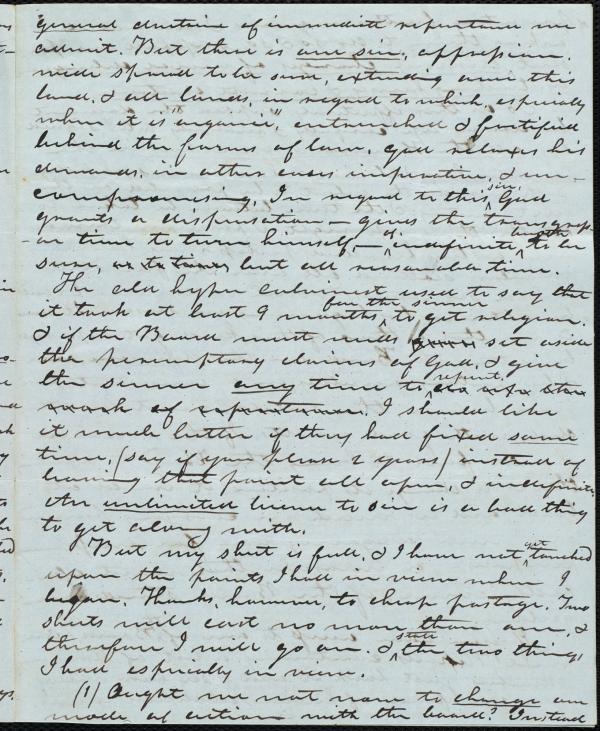 general doctrine of immediate repentance we
admit. But there is one sin, oppression,
wide spread to be sure, extending over this
land, & all lands, in regard to which, especially
when it is "organic", entrenched & fortified
behind the forms of law, God relaxes his
demands, in other cases imperative, & un-
compromising. In regard to this sin, God
grants a dispensation — gives the transgress-
-or time to turn himself, — indefinite to be
sure, but all reasonable time.
The old hyper calvinist used to say that
it took at least 9 months for the sinner to get religion.
& if the Board must needs set aside
the peremptory claims of God, & give
the sinner any time to repent,
I should like
it much better if they had fixed some
time, (say if you please 2 years) instead of
leaving that point all open, & indefinite.
An unlimited license to sin is a bad thing
to get along with.
But my sheet is full, & I have not yet touched
upon the points I had in view when I
began. Thanks, however, to cheap postage. Two
sheets will cost no more than one, &
therefore I will go on. & state the two things
I had especially in view.
(1) Ought we not now to change our
mode of action with the board? Instead